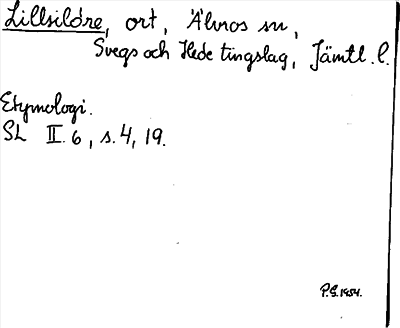 Lillsildre, ort, Älvros sn,
Svegs och Hede tingslag, Jämtl. l.
Etymologi.
SL II. 6, s. 4, 19.
P.G. 1954.